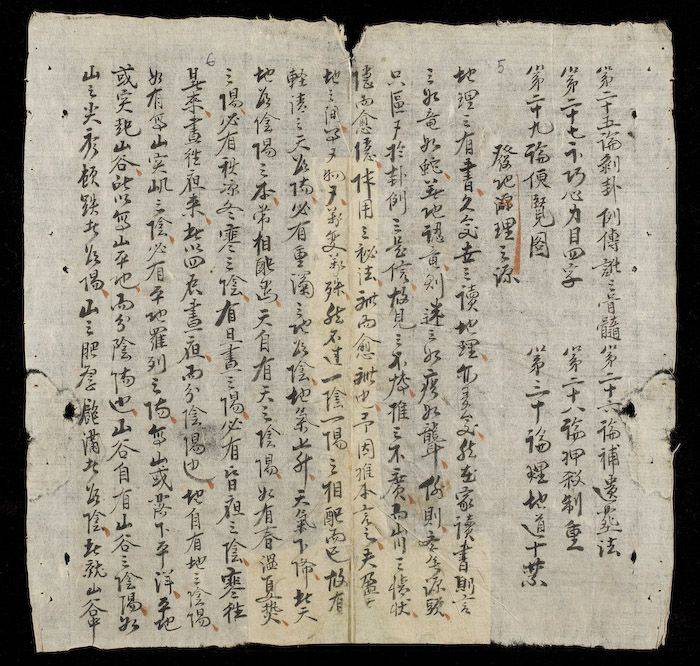 第二十五論剝卦例傳訛之骨髓 第二十六論補遺葬法
第二十七示巧心力目四字 第二十八論押殺制重
第二十九論便覽圖 第三十論理地道十禁
發地理之源
地理之有書久矣世之讀地理者多矣然在家讀書則言
之如竜如蛇至地認真則迷之如痴如聾何則無源頭
只區々於卦例之是信故見之不能推之不廣而山川之情狀
隱而愈隱体用之秘法秘而愈秘也予因推本言之夫盈乎
地之間萬變萬殊然不過一陰一陽之相配而已故有
輕清之天爲陽必有重濁之地爲陰地氣上升天氣下降此天
地爲陰陽之本常相配也天自有天之陰陽如有春溫夏熱
之陽必有秋凉冬寒之陰有日晝之陽必有昏夜之陰寒往
暑來晝往夜來此以四辰晝夜而分陰陽也地自有地之陰陽
如有高山突屼之陰必有平地羅列之陽高山或落下平洋平地
或突起山谷此以高山平地而分陰陽也山谷自有山谷之陰陽如
山之尖秀頓跌者爲陽山之肥厚飽滿者爲陰此就山谷中
5
6